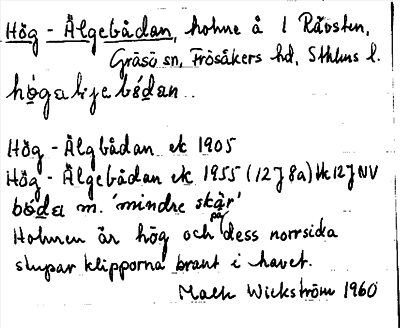 Hög - Älgebådan, holme å 1 Råvsten,
Gräsö sn, Frösåkers hd, Sthlms l.
Hög - Älgbådan ek 1905
Hög - Älgebådan ek 1955 (12J 8a) Hk 12J NV
m. 'mindre skär'
Holmen är hög och på dess norrsida
stupar klipporna brant i havet.
Math Wickström 1960